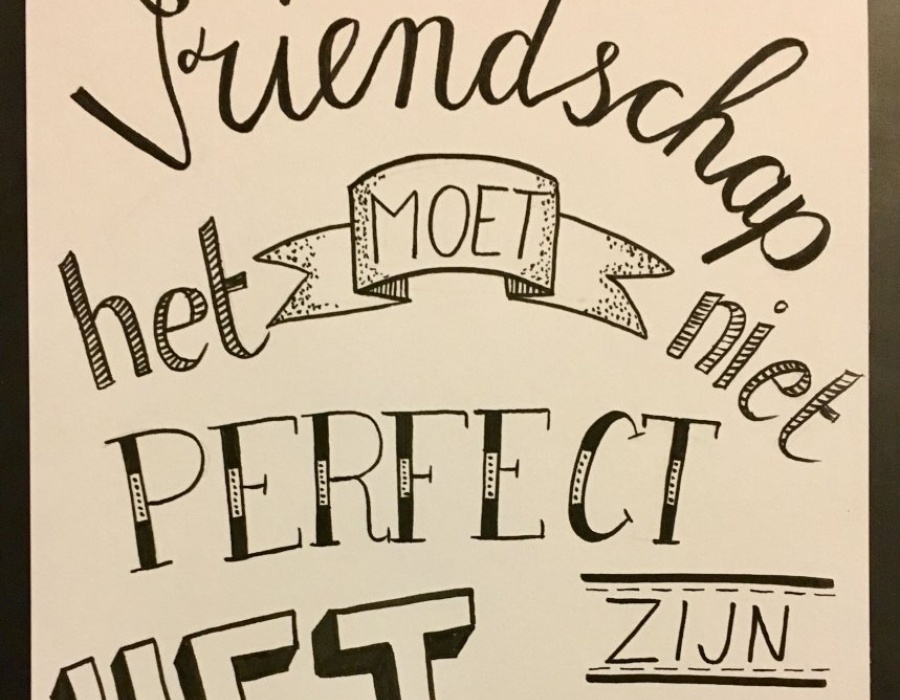 Vriendschap
het MOET niet
PERFECT
HET ZIJN